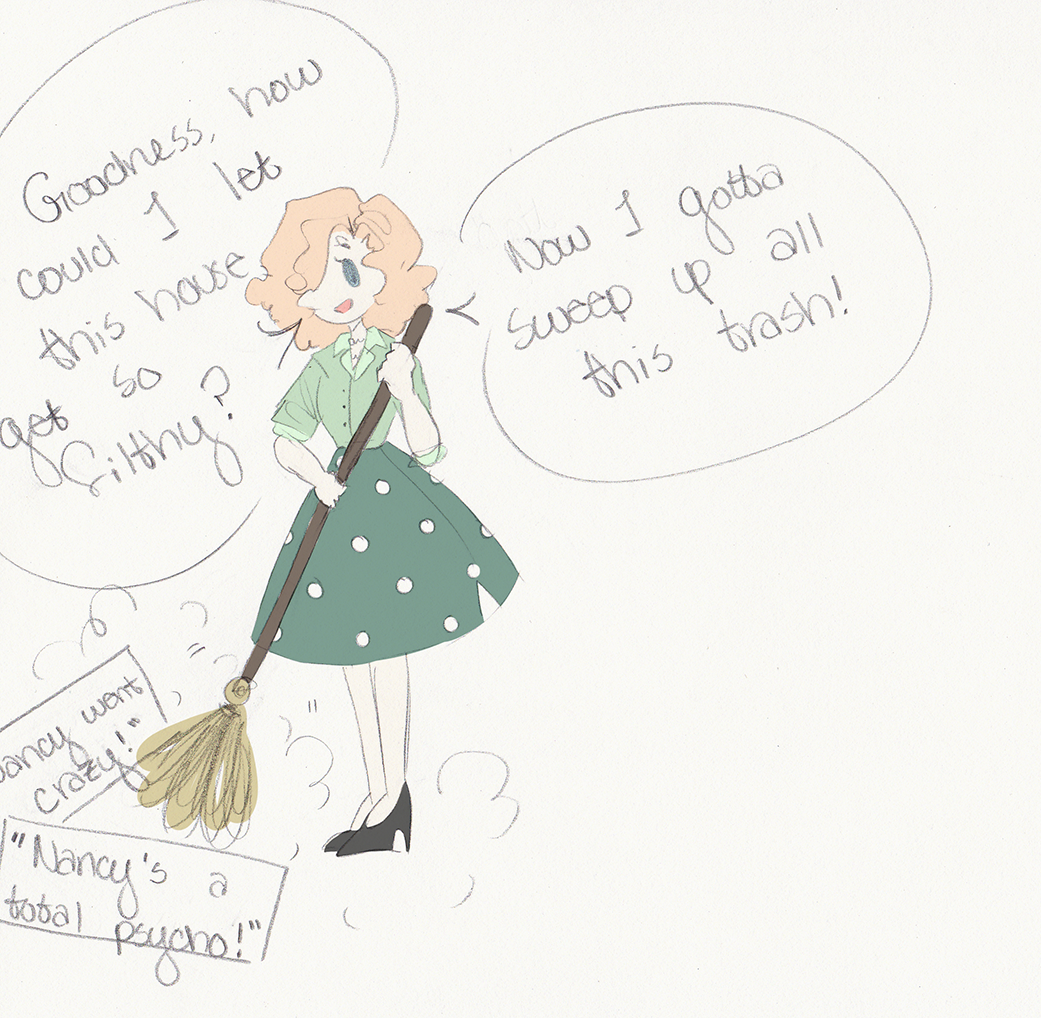 Goodness, how
could I let
this house
get so
filthy?
Now I gotta
sweep up all
this trash!
Nancy went
crazy!"
"Nancy's a
total psycho!"